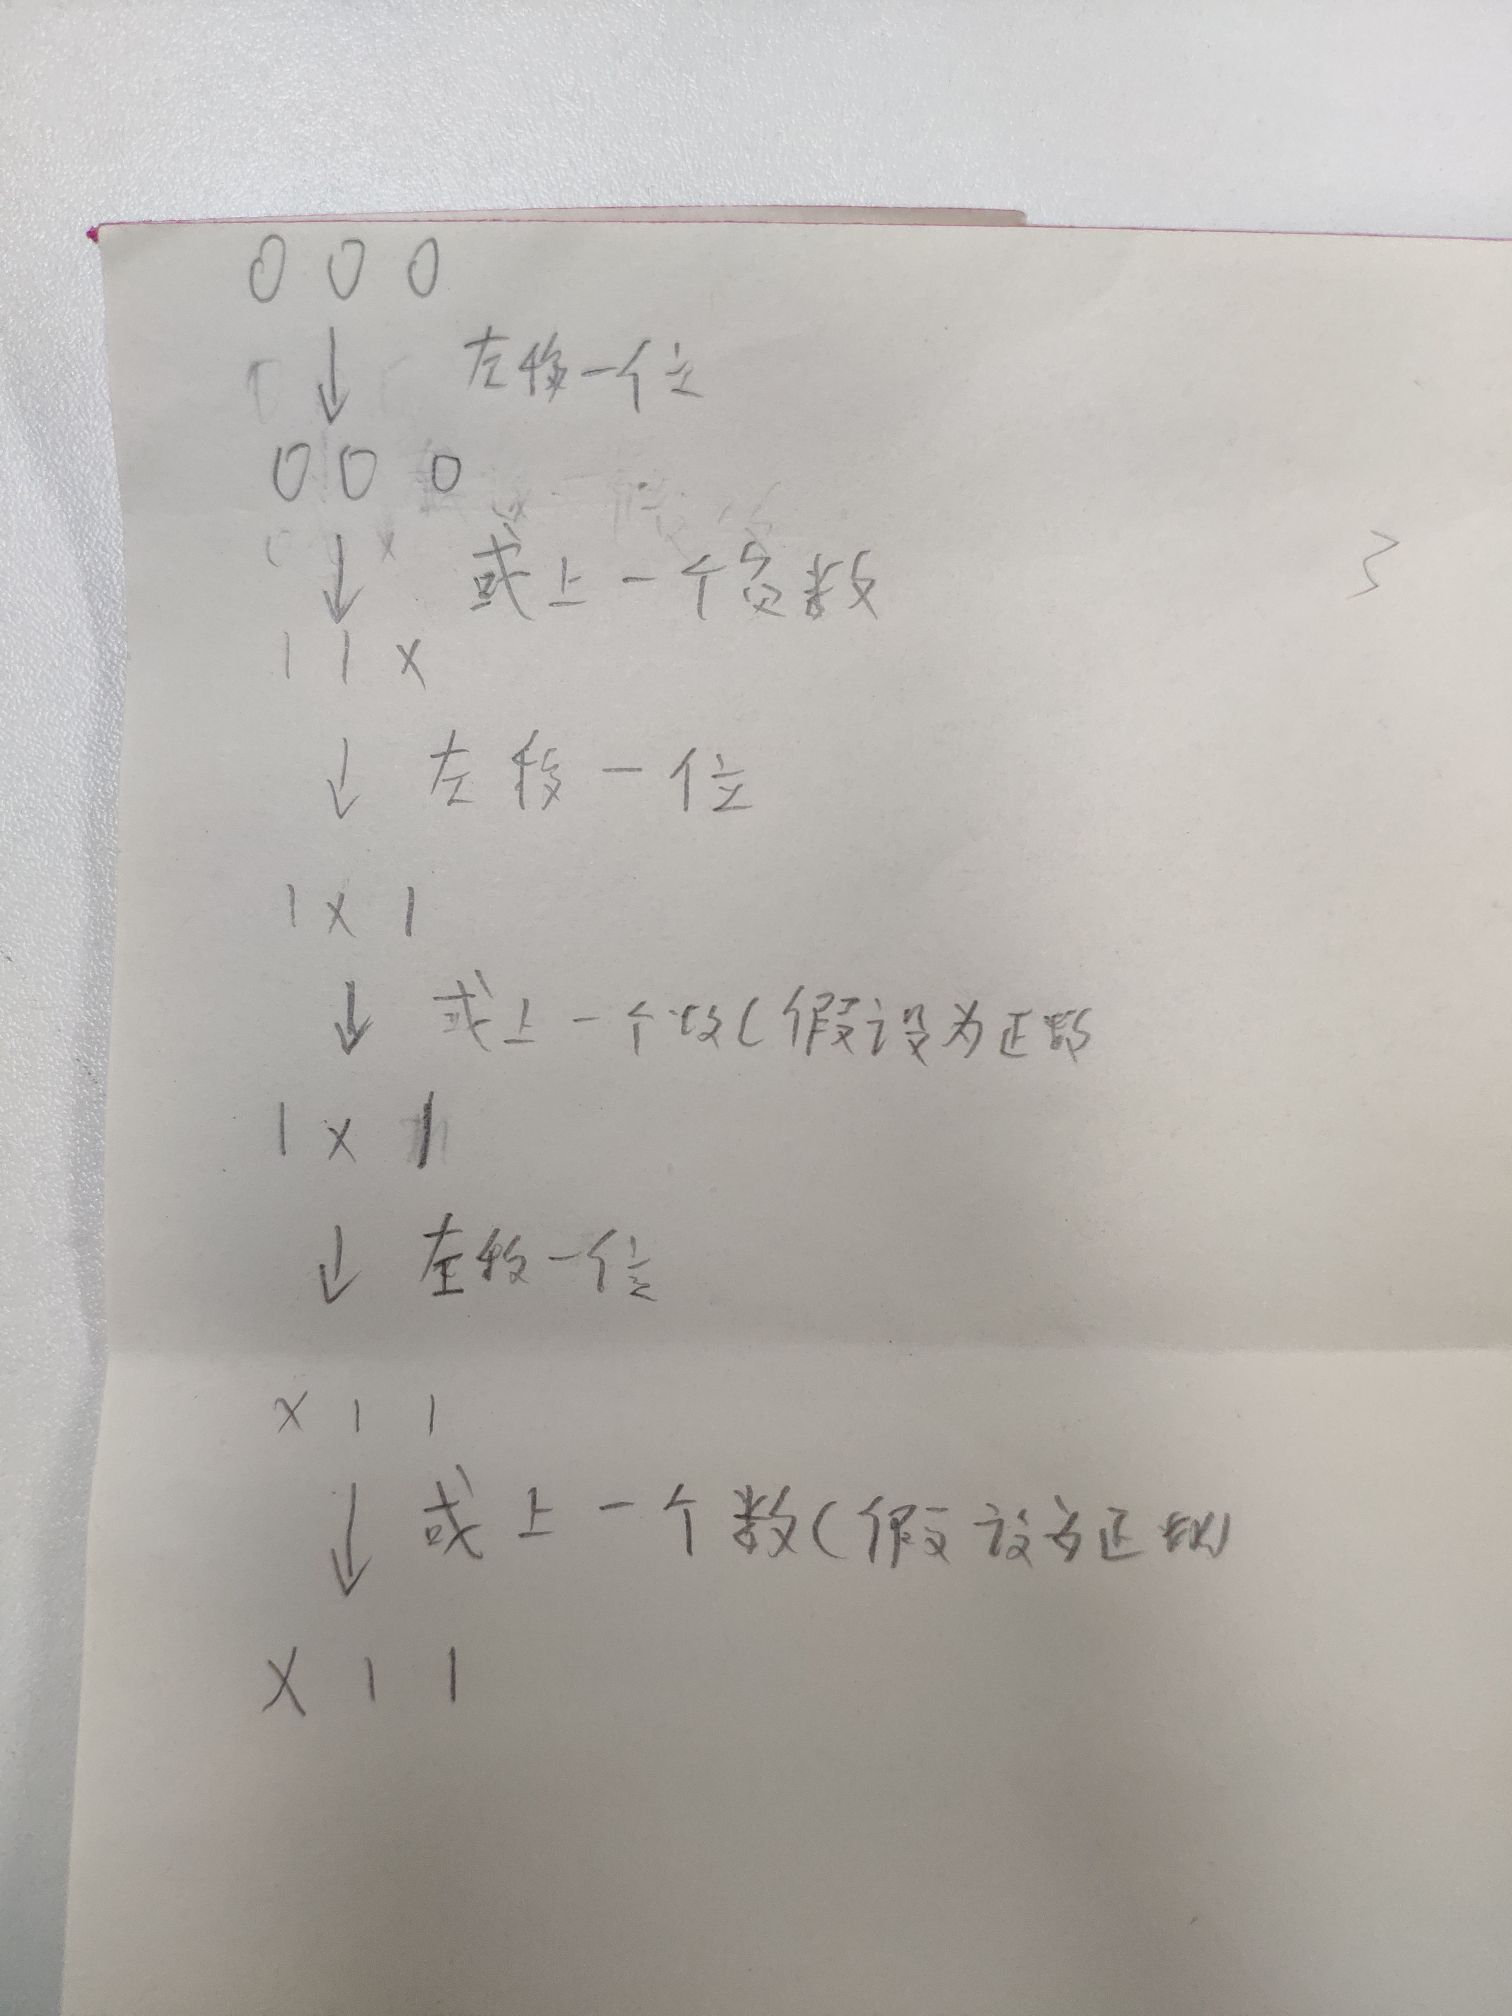 0 0 0
↓ 左移一位
0 0 0
↓ 或上一个负数
1 1 x
↓ 左移一位
1 x 1
↓ 或上一个数(假设为正数
1 x 1
↓ 左移一位
x 1 1
↓ 或上一个数(假设为正数)
x 1 1